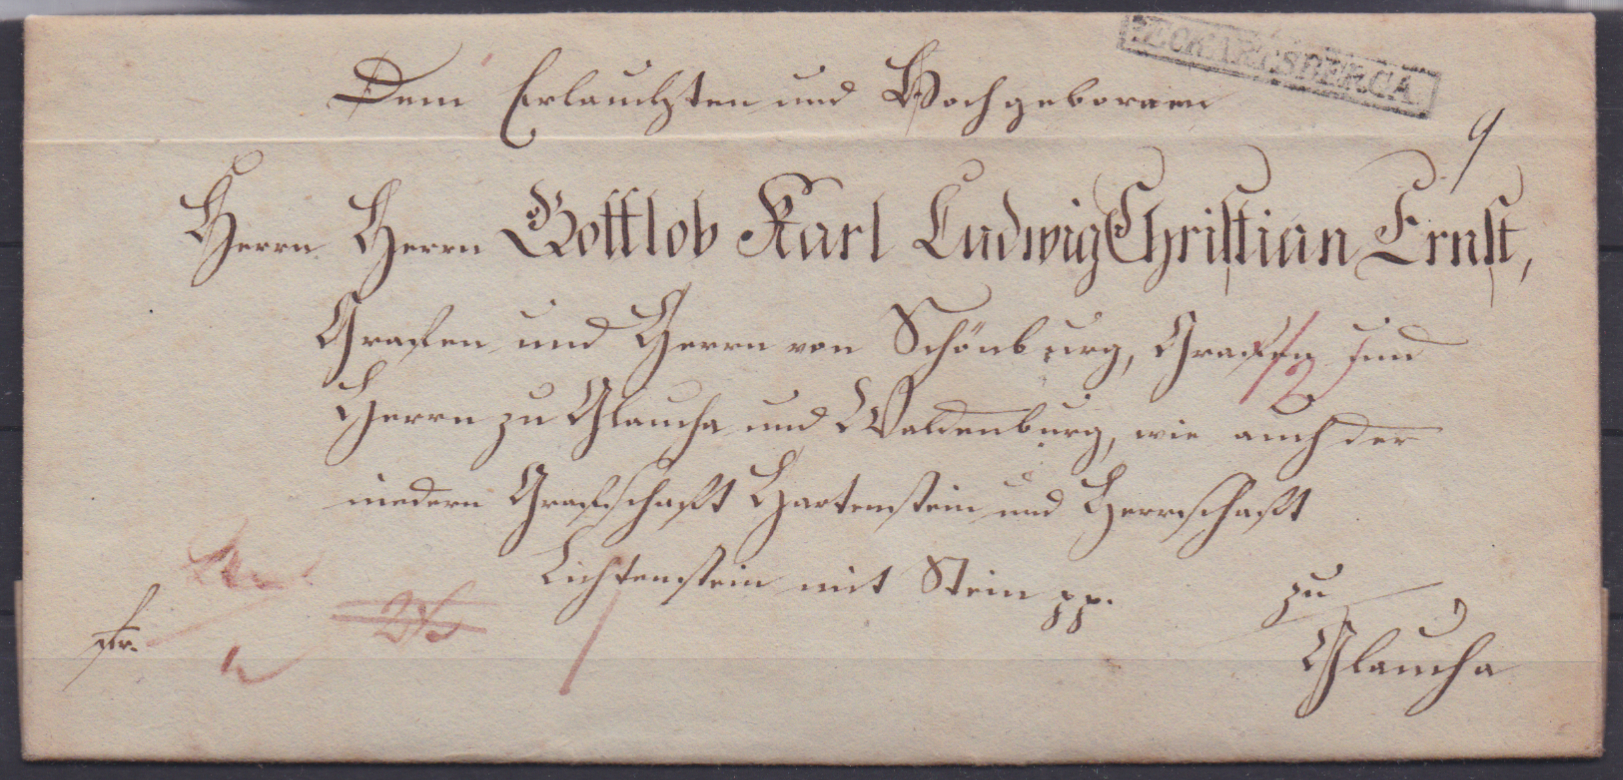 ECKARTSBERGA
Dem Erlauchten und Hochgebornen
9
Herrn Herrn Gottlob Karl Ludwig Christian Ernst,
Grafen und Herrn von Schönburg, Grafen und
Herrn zu Glaucha und Waldenburg, wie auch der
niedern Grafschaft Hartenstein und Herrschaft
Lichtenstein mit Stein pp.
zu
fr.
Glaucha